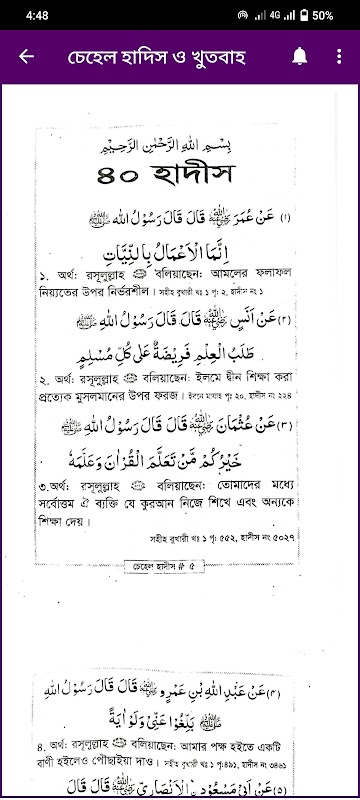 4:48 4G 50%
চেহেল হাদিস ও খুতবাহ
بِسْمِ اللهِ الرَّحْمٰنِ الرَّحِيْمِ
৪০ হাদীস
(۱) عَنْ عُمَرَ ﷺ قَالَ قَالَ رَسُوْلُ الله ﷺ
اِنَّمَا الْاَعْمَالُ بِالنِّيَّاتِ
১. অর্থ: রসূলুল্লাহ ﷺ বলিয়াছেন: আমলের ফলাফল
নিয়্যতের উপর নির্ভরশীল । সহীহ বুখারী খঃ ১ পৃ: ২, হাদীস নং ১
(۲) عَنْ اَنَسٍ قَالَ قَالَ رَسُوْلُ اللهِ ﷺ
طَلَبُ الْعِلْمِ فَرِيْضَةٌ عَلٰى كُلِّ مُسْلِمٍ
২. অর্থ: রসূলুল্লাহ ﷺ বলিয়াছেন: ইলমে দ্বীন শিক্ষা করা
প্রত্যেক মুসলমানের উপর ফরজ । ইবনে মাযাহ পৃ: ২০, হাদীস নং ২২৪
(۳) عَنْ عُثْمَانَ قَالَ قَالَ رَسُوْلُ اللهِ ﷺ
خَيْرُكُمْ مَّنْ تَعَلَّمَ الْقُرْاٰنَ وَعَلَّمَهٗ
৩.অর্থ: রসূলুল্লাহ ﷺ বলিয়াছেন: তোমাদের মধ্যে
সর্বোত্তম ঐ ব্যক্তি যে কুরআন নিজে শিখে এবং অন্যকে
শিক্ষা দেয় ।
সহীহ বুখারী খঃ ১ পৃ: ৫৫২, হাদীস নং ৫০২৭
চেহেল হাদীস # ৫
(۴) عَنْ عَبْدِ اللهِ بْنِ عَمْرٍو قَالَ قَالَ رَسُوْلُ اللهِ
ﷺ بَلِّغُوْا عَنِّيْ وَلَوْ اٰيَةً
৪. অর্থ: রসূলুল্লাহ ﷺ বলিয়াছেন: আমার পক্ষ হইতে একটি
বাণী হইলেও পৌছাইয়া দাও । সহীহ বুখারী খঃ ১ পৃ:৪৯১, হাদীস নং ৩৪৬১
(۵) عَنْ اَبِيْ مَسْعُوْدٍ الْاَنْصَارِيِّ قَالَ قَالَ